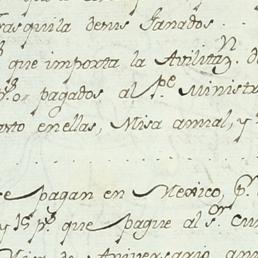 rasquila de mis Ganados
que importa la Avilitazn. d
ps. pagados al Pe. Ministr
arto en ellas, Misa annual, y
se pagan en Mexico, p.
y 15 ps. que pague al Sor. Cu
Misa de Aniversario an